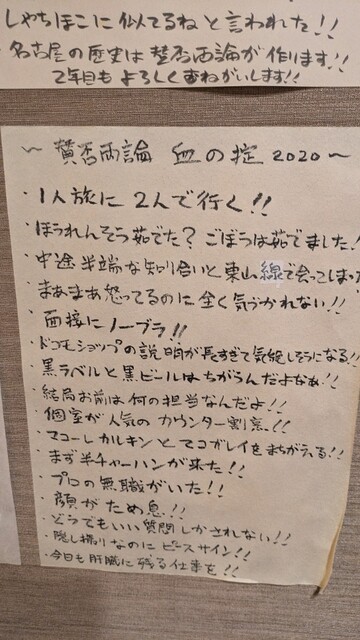 しゃちほこに似てるねと言われた!!
・名古屋の歴史は賛否両論が作ります!!
2年目もよろしくおねがいします!!
〜 賛否両論 血の掟 2020 〜
・1人旅に2人で行く!!
・ほうれんそう茹でた?ごぼうは茹でました!
・中途半端な知り合いと東山線で会ってしまっ
・まぁまぁ怒ってるのに全く気づかれない!!
・面接にノーブラ!!
・ドコモショップの説明が長すぎて気絶しそうになる!!
・黒ラベルと黒ビールはちがうんだよなぁ!!
・結局お前は何の担当なんだよ!!
・個室が人気のカウンター割烹!!
・マコーレカルキンとマコガレイをまちがえる!!
・まず半チャーハンが来た!!
・プロの無職がいた!!
・顔がため息!!
・どうでもいい質問しかされない!!
・隠し撮りなのにピースサイン!!
・今日も肝臓に残る仕事を!!